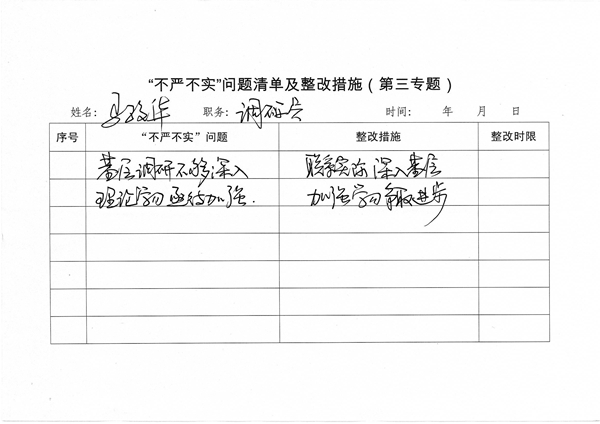 “不严不实”问题清单及整改措施（第三专题）
姓名： 职务：调研员 时间： 年 月 日
序号 “不严不实”问题 整改措施 整改时限
基层调研不够深入 联系实际深入基层
理论学习亟待加强. 加强学习争取进步